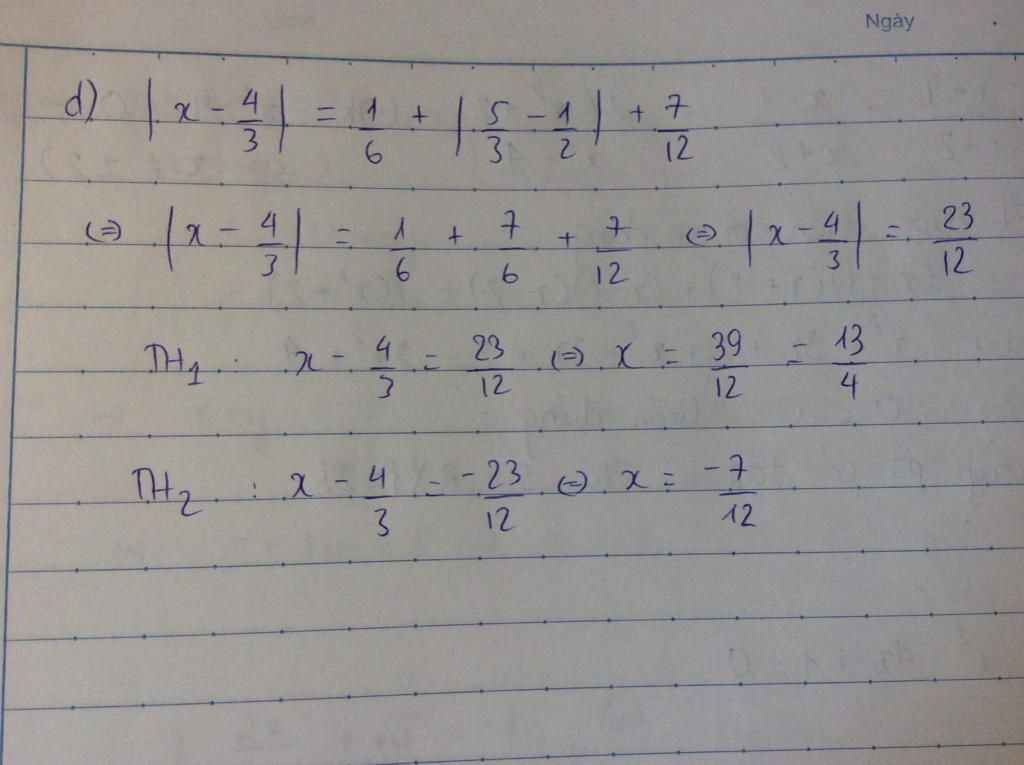 Ngày
d) |x - 4/3| = 1/6 + |5/3 - 1/2| + 7/12
⇔ |x - 4/3| = 1/6 + 7/6 + 7/12 ⇔ |x - 4/3| = 23/12
TH1 : x - 4/3 = 23/12 ⇔ x = 39/12 = 13/4
TH2 : x - 4/3 = -23/12 ⇔ x = -7/12